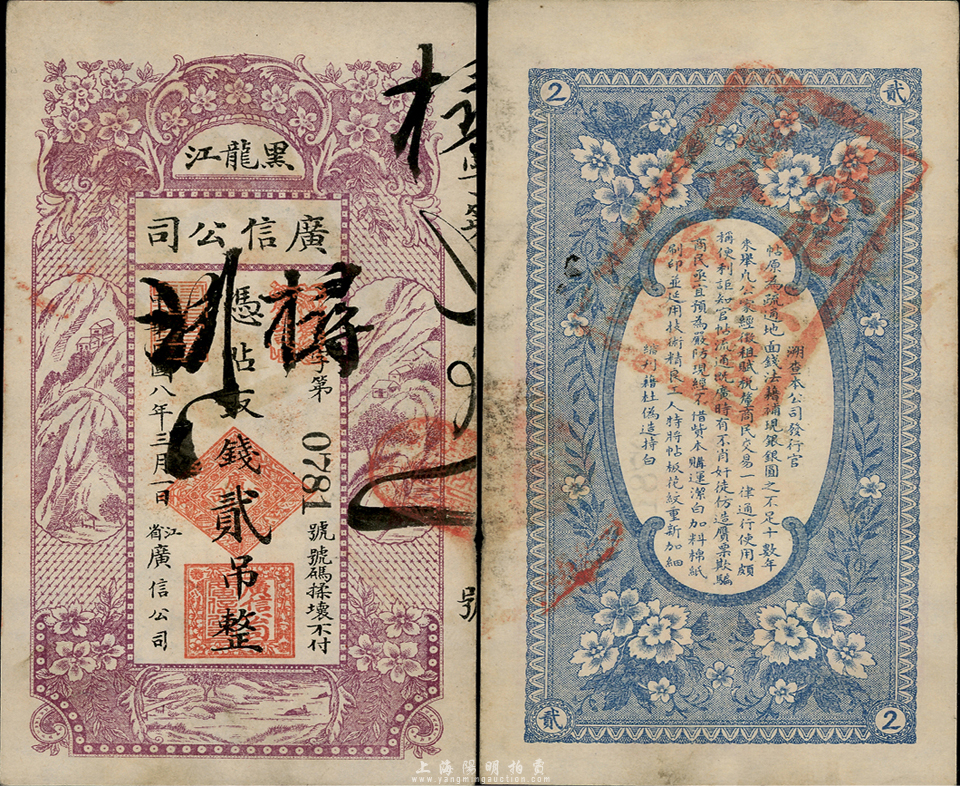 黑龍江
廣信公司
字第
0781
號號碼揉壞不付
憑帖取
錢貳吊整
國八年三月一日
江省廣信公司
號
2
貳
溯查本公司發行官
帖原為疏通地面錢法藉補現銀銀圓之不足十數年
來舉凡公家經徵租賦稅釐商民交易一律通行使用頗
稱便利詎知官帖流通既廣時有不肖奸徒仿造贋票欺騙
商民亟宜預為嚴防現經不惜貲本購運潔白加料棉紙
刷印並延用技術精良工人特將帖板花紋重新加細
編列藉杜偽造特白
貳
2
上海陽明拍賣
www.yangmingauction.com